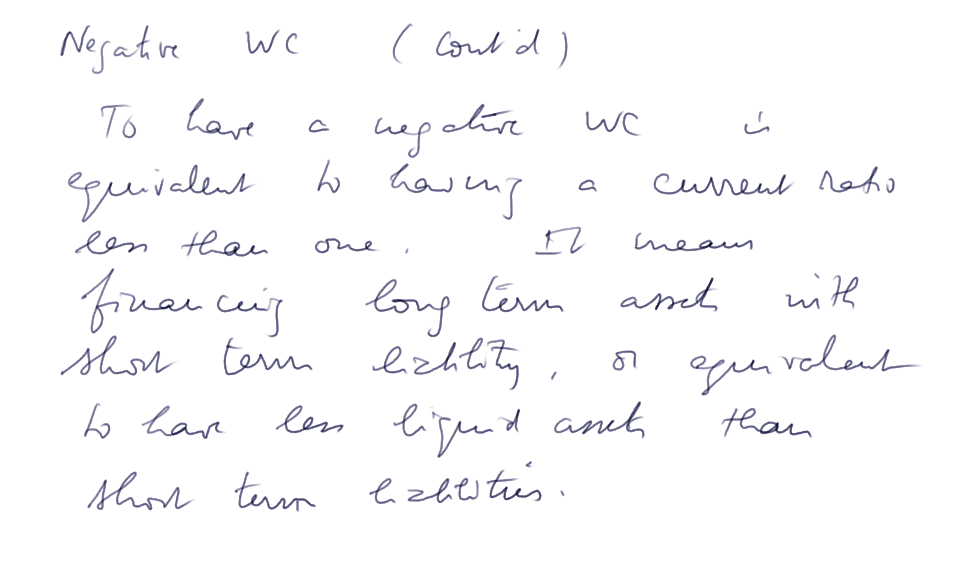 Negative WC (Cont'd)
To have a negative WC is
equivalent to having a current ratio
less than one. It means
financing long term assets with
short term liability, or equivalent
to have less liquid assets than
short term liabilities.